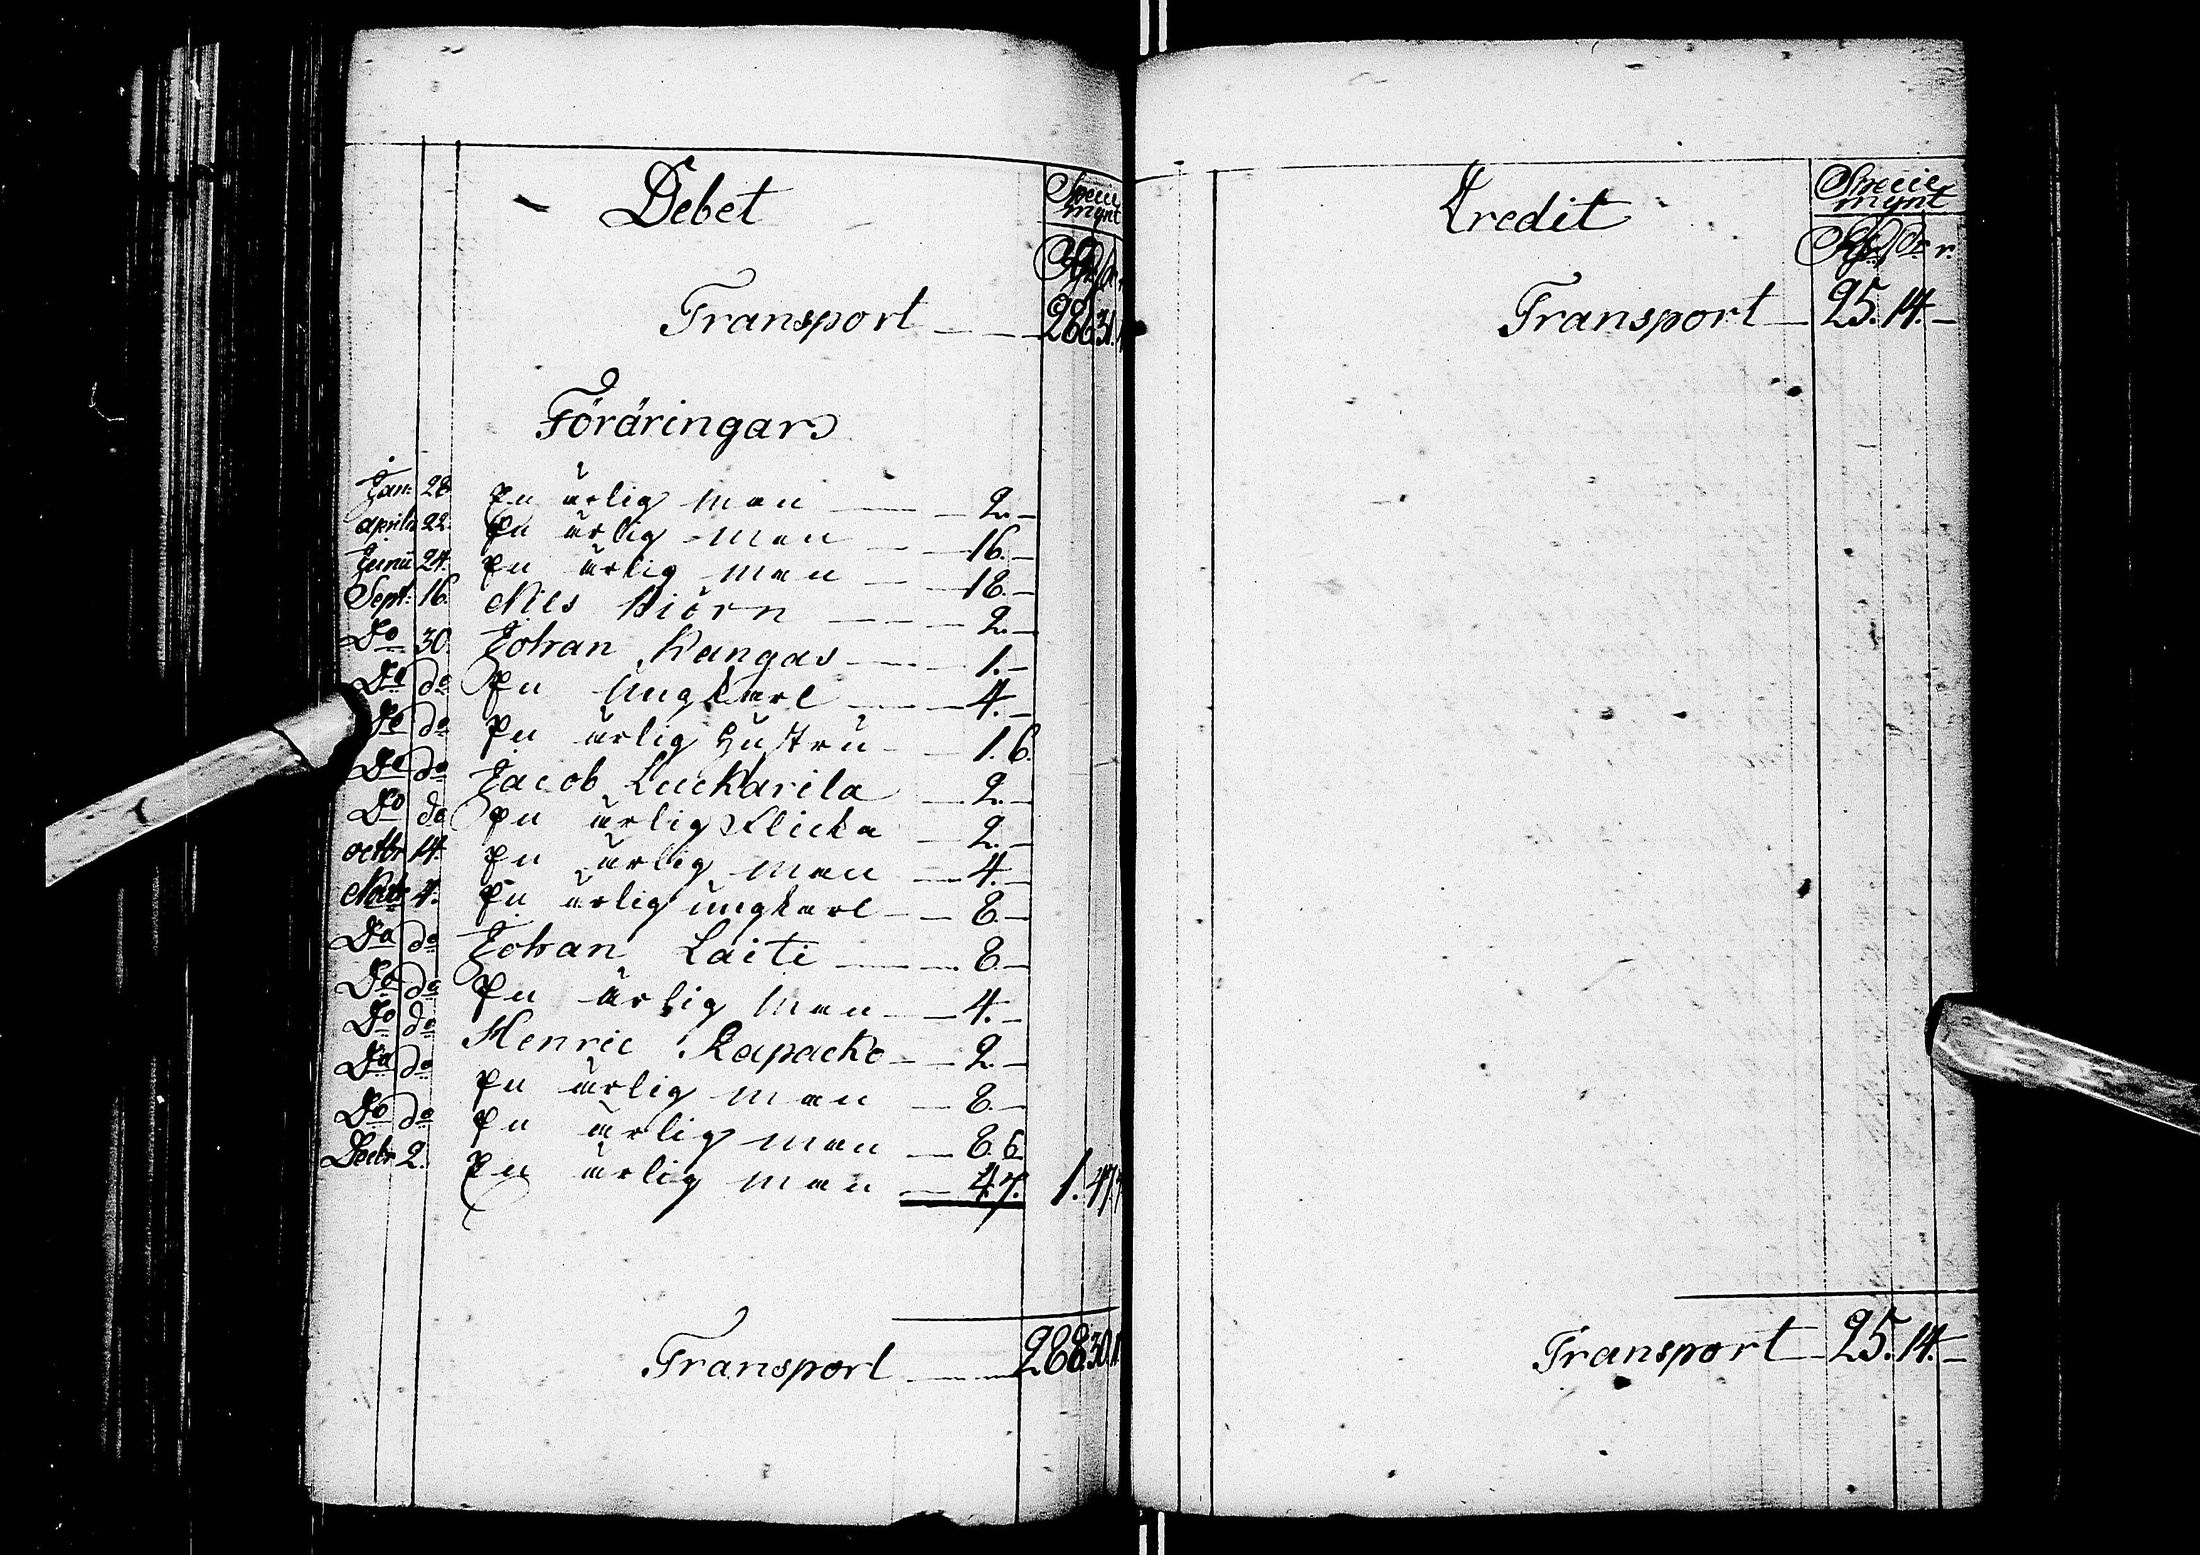 Debet
Specie
mynt
Transport 286 31.
Föräringar
Jan: 28. En ärlig man 2. –
aprilis 22. En ärlig man 16. –
Junii 24. En ärlig man 18. –
Sept: 16. Nils Biörn 2. –
Do 30 Johan Kangas 1. –
Do do En ungkarl 4. –
Do do En ärlig Hustru 1. 6.
Do do Jacob Luckarila 2. –
Do do En ärlig Flicka 2. –
octbr 14. En ärlig man 4. –
Novbr 4. En ärlig ungkarl 8. –
Do do Johan Laiti 8. –
Do do En ärlig man 4. –
Do do Henric Rapacko 2. –
Do do En ärlig man 8. –
Do do En ärlig man 8. 6.
Decbr 2. En ärlig man 4. 7. 1. 47.
Transport 288. 30.
Credit
Specie
mynt
Transport 25. 14. –
Transport 25. 14. –